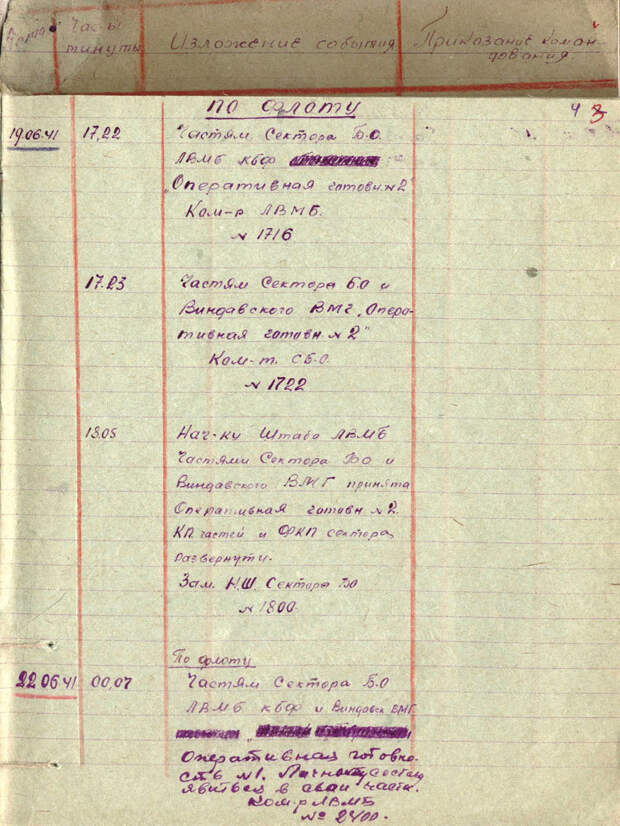 Часы
минуты
Изложение события
Приказание коман-
дования
По флоту
4 3
19.06.41 17,22 Частям Сектора Б.О.
ЛВМБ КБФ
"Оперативная готовн. №2"
Ком-р ЛВМБ.
№ 1716
17.23 Частям Сектора БО и
Виндавского ВМГ „Опера-
тивная готовн № 2"
Ком-т. СБО.
№ 1722
18.05 Нач-ку Штаба ЛВМБ
Частями Сектора БО и
Виндавского ВМГ принята
Оперативная готовн №2.
КП частей и ФКП сектора
развернути.
Зам. Н.Ш. Сектора БО
№ 1800.
По флоту
22 06 41 00,07 Частям Сектора Б.О
ЛВМБ КБФ и Виндовск ВМГ.
Оперативная готовно-
сть №1. Личному составу
явится в сваи части.
Ком-р ЛВМБ
№ 2400.